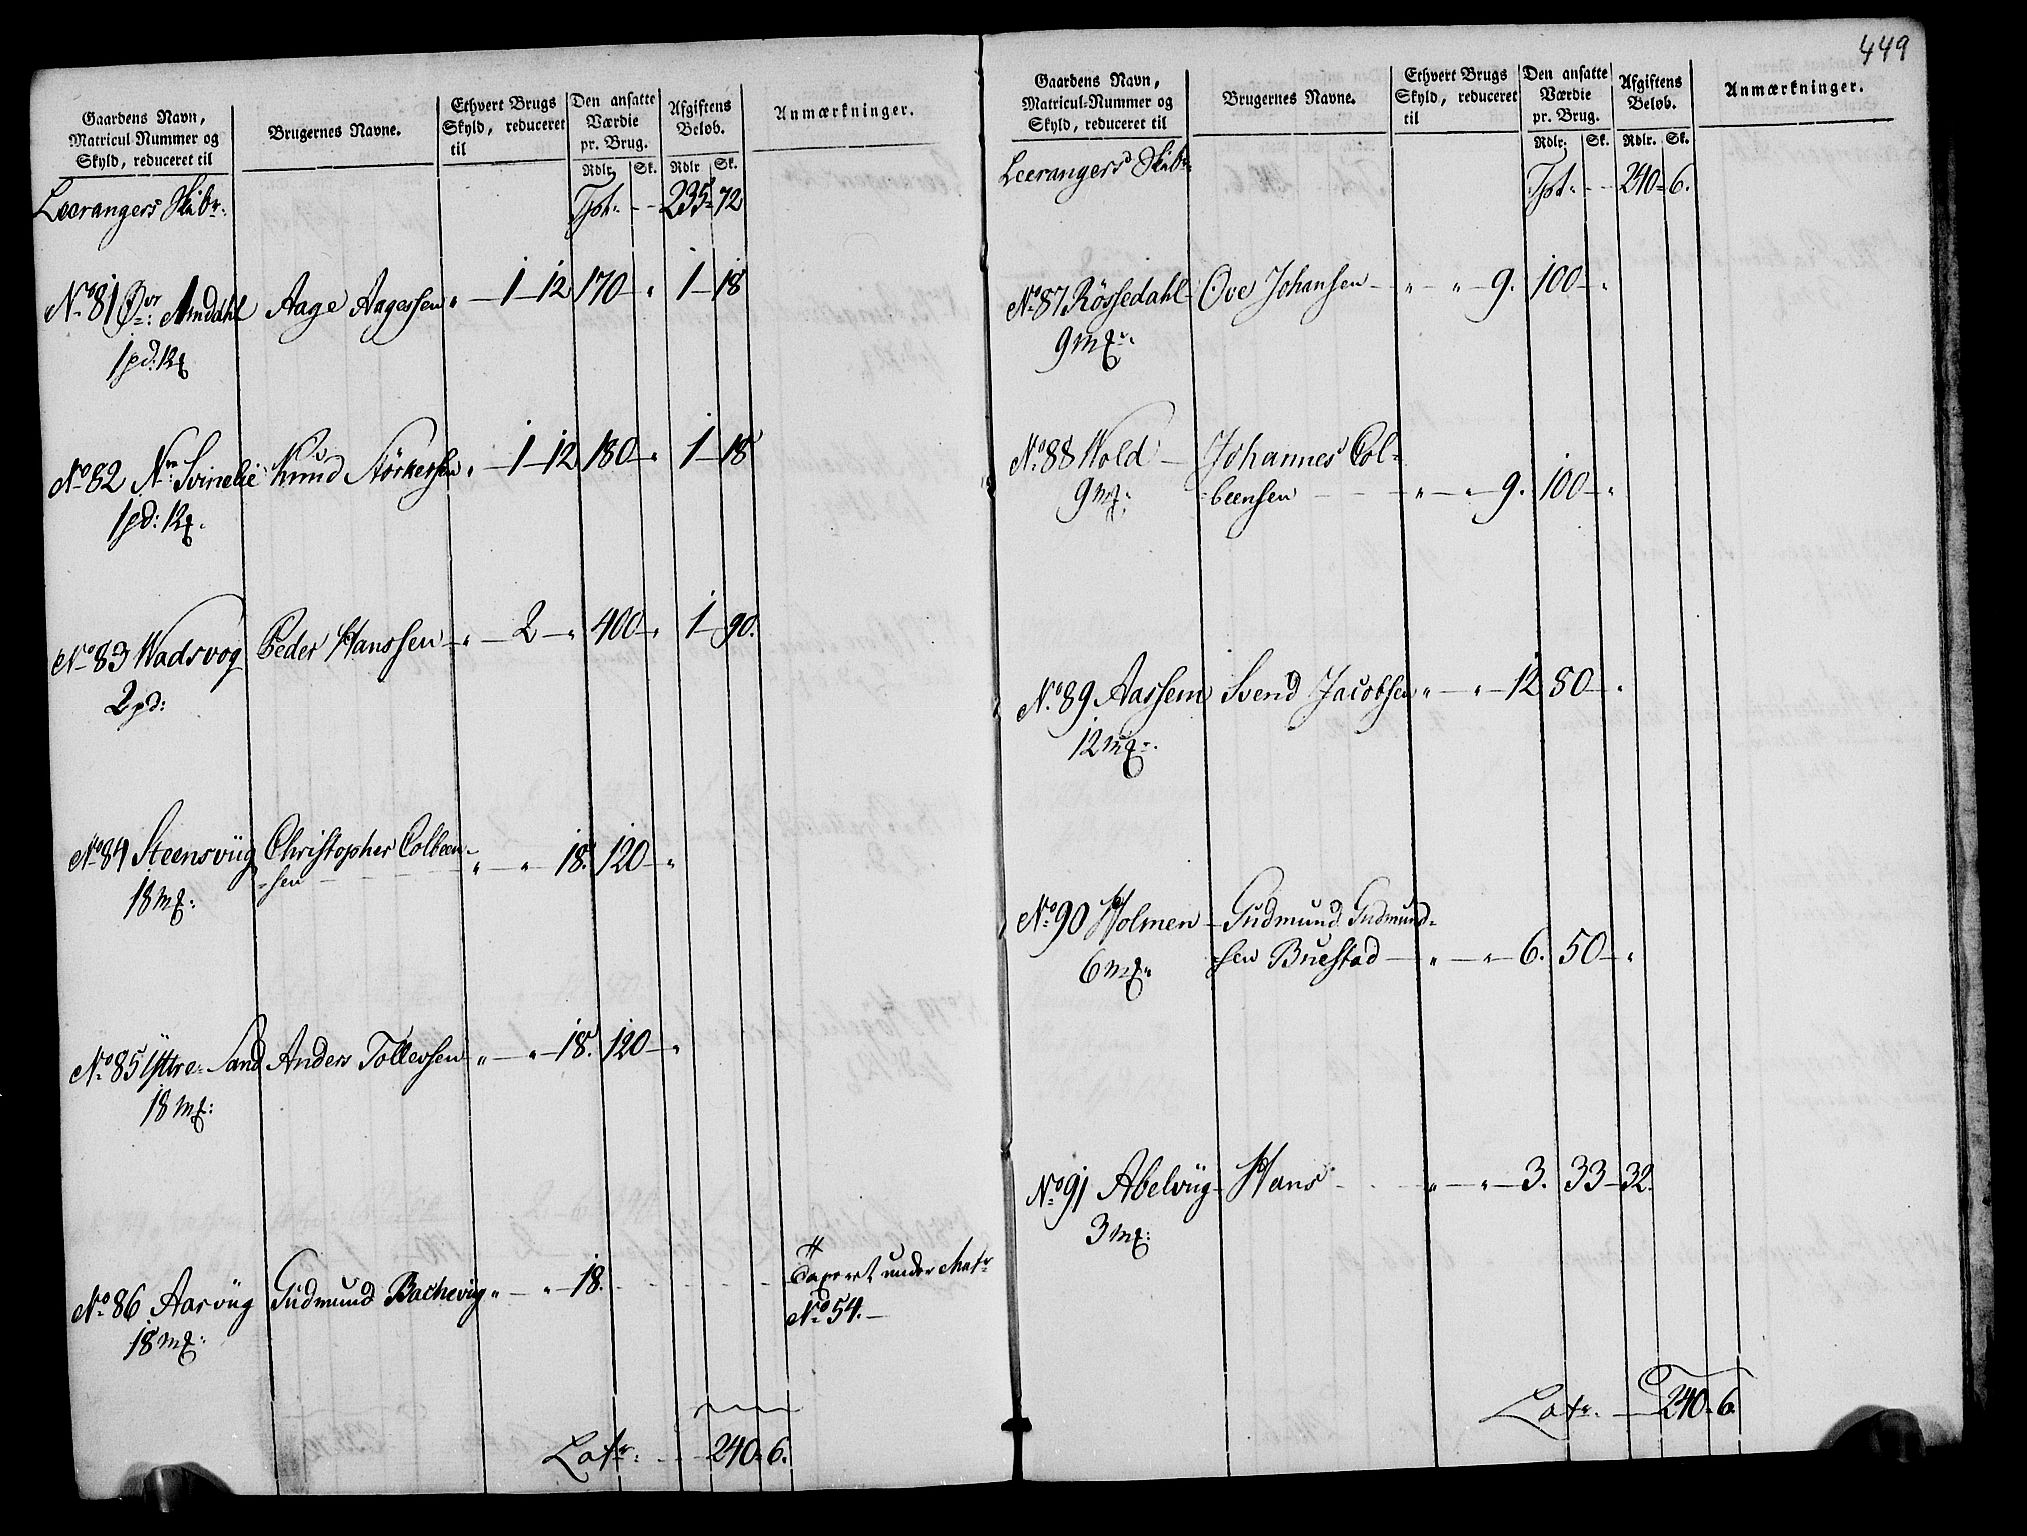 Gaardens Navn,
Matricul-Nummer og
Skyld, reduceret til
Brugernes Navne.
Ethvert Brugs
Skyld, reduceret
til
Den ansatte
Værdie
pr. Brug.
Rdlr. Sk.
Afgiftens
Beløb.
Rdlr Sk.
Anmærkninger.
Leerangers Skibr: Tpt: 235 72
No 81 Øvr: Amdahl Aage Aagessen " 1 12 170 " 1 18
1 pd: 12 mg
No 82 Nr: Svinelie Knud Störkersen " 1 12 180 " 1 18
1 pd: 12 mg.
No 83 Wadsvog Peder Hanssen " 2 " 400 " 1 90.
2 pd:
No 84 Steensvüg Christopher Colbeen-
-sen " " 18. 120 "
18 mg:
No 85 Yttre Sand Anders Tollevsen " " 18. 120 "
18 mg:
No 86 Aarvüg Gudmund Bachevig " " 18.
18 mg:
Taxeret under Matr
No 54.
Latr: 240 6.
449
Gaardens Navn,
Matricul-Nummer og
Skyld, reduceret til
Brugernes Navne.
Ethvert Brugs
Skyld, reduceret
til
Den ansatte
Værdie
pr. Brug.
Rdlr. Sk.
Afgiftens
Beløb.
Rdlr. Sk.
Anmærkninger.
Leerangers Skibr: Tpt: 240 6.
No 87 Rössedahl Ove Johansen " " 9. 100 "
9 mg:
No 88 Wold Johannes Col-
-beensen " " 9. 100 "
9 mg:
No 89 Aassem Svend Jacobsen " " 12 80 "
12 mg:
No 90 Holmen Gudmund Gudmund-
-sen Buestad " " 6. 50 "
6 mg:
No 91 Abelvüg Hans " " 3. 33 32.
3 mg:
Latr: 240 6